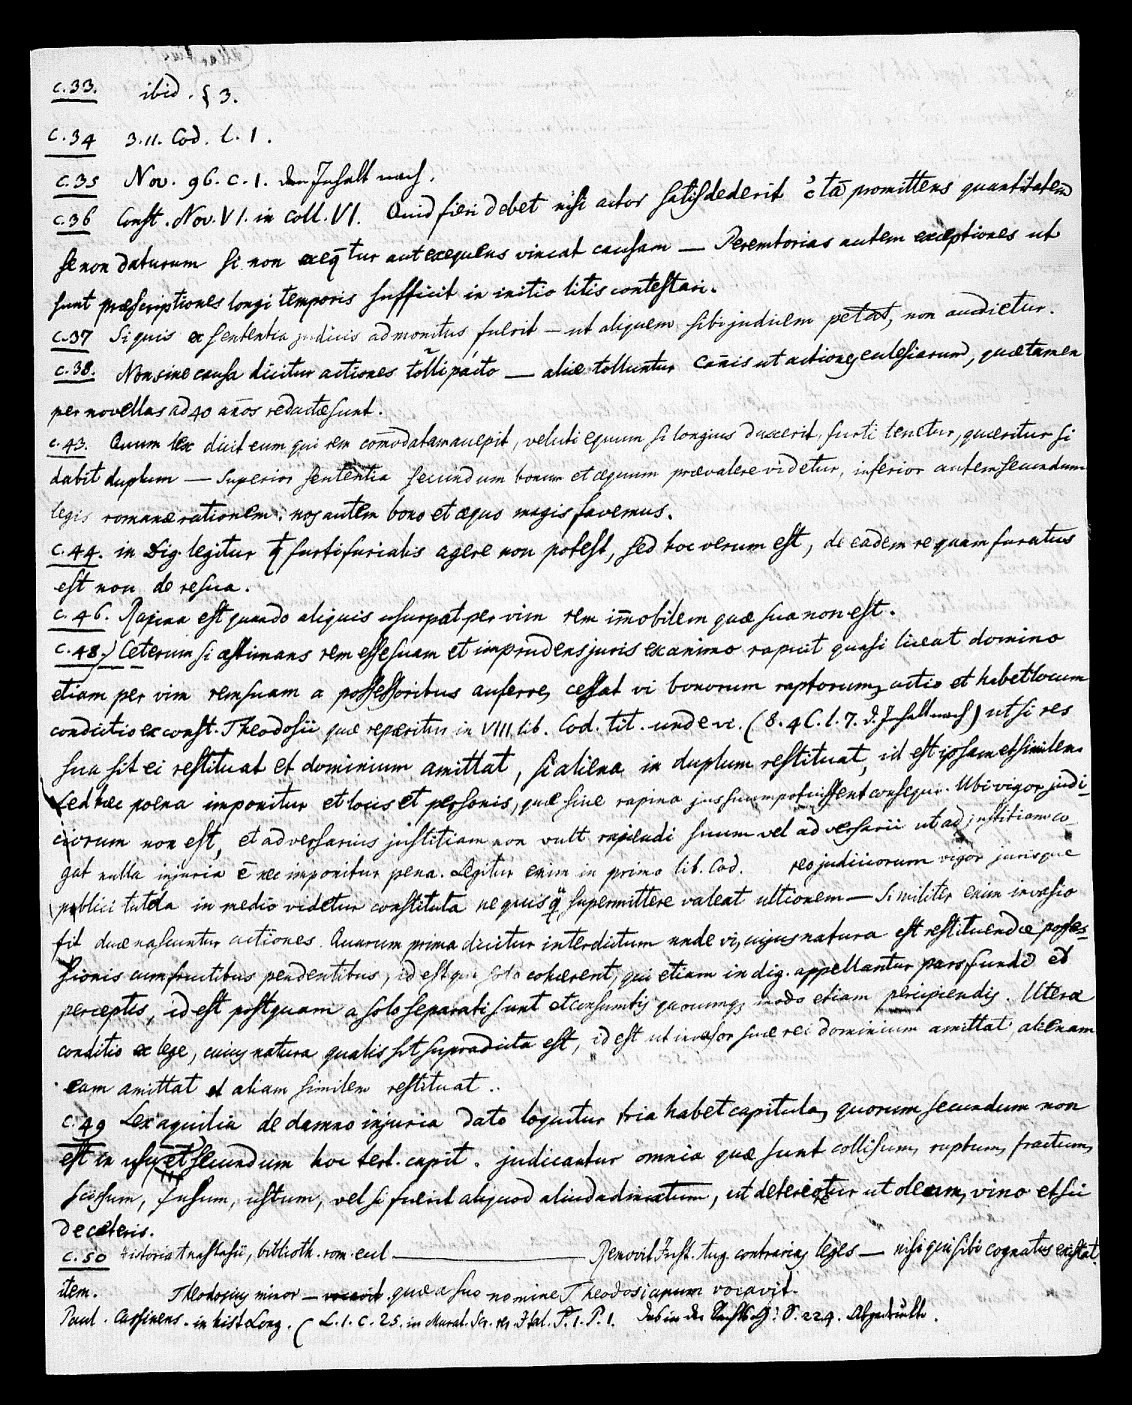 c.33. ibid. § 3.
c.34 3.11. Cod. l. 1.
c.35 Nov. 96. c. 1. dem Inhalt nach.
c.36 Const. Nov. VI. in Coll. VI. Quid fieri debet nisi actor satisdederit promittens quantitatem
se non daturum si non exeq̄tur aut exequens vincat causam — Peremtorias autem exceptiones ut
sunt præscriptiones longi temporis sufficit in initio litis contestari.
c.37 Si quis ex sententia judicis admonitus fuerit — ut aliquem sibi judicem petat, non audietur.
c.38. Non sine causa dicitur actiones tolli pacto — aliæ tolluntur añis ut actiones eclesiarum, quæ tamen
per novellas ad 40 años redactæ sunt.
c.43. Quum lex dicit eum qui rem com̄odatam accepit, veluti equum si longius duxerit, furti tenetur, quæritur si
dabit duplum — Superior sententia secundum bonum et æquum prævalere videtur, inferior autem secundum
legis romanæ rationem; nos autem bono et æquo magis favemus.
c.44. in Dig. legitur q̄ furti furialis agere non potest, sed hoc verum est, de eadem re quam furatus
est non de re sua.
c.46. Rapina est quando aliquis usurpat per vim rem im̄obilem quæ sua non est.
c.48.) Ceterum si æstimans rem esse suam et imprudens juris ex animo rapuit quasi liceat domino
etiam per vim rem suam a possessoribus auferre, cessat vi bonorum raptorum actio et habet locum
condictio ex const. Theodosii quæ reperitur in VIII lib. Cod. tit. unde vi. (8. 4 C. l. 7. d. Inhalt nach) ut si res
sua sit ei restituat et dominium amittat, si aliena in duplum restituat, id est ipsam et similem
sed hæc poena imponitur et locis et personis, quæ sine rapina jus suum potuissent consequi. Ubi vigor judi-
ciorum non est, et adversarius justitiam non vult rapiendi suum vel adversarii ut ad justitiam co-
gat nulla injuria ē nec imponitur pena. Legitur enim in primo lib. Cod. judiciorum vigor jurisque
publici tutela in medio videtur constituta ne quisq̄ supermittere valeat ultionem — Similiter enim invasio
fit duæ nascuntur actiones. Quarum prima dicitur interdictum unde vi, cujus natura est restituendæ posses-
sionis cum fructibus pendentibus, id est qui solo cohærent, qui etiam in dig. appellantur pars fundi et
perceptis, id est postquam a solo separati sunt et consumtis quocunq; modo etiam percipiendis. Utera
conditio ex lege, cuius natura qualis sit supradicta est, id est ut invasor suæ rei dominium amittat, alienam
eam amittat et aliam similem restituat.
c.49 Lex aquilia de damno injuria dato loquitur tria habet capitula, quorum secundum non
est in usu et secundum hoc tert. capit. judicantur omnia quæ sunt collisum, ruptum, fractum,
scissum, fusum, ustum, vel si fuerit aliquod aliud admixtum, ut deterioretur ut oleum, vino et sic
de cæteris.
c.50 Historia Anastasii, biblioth. rom. eccl. — Removit Just. Aug. contrarias leges — nisi qui sibi cognatus existat.
item. Theodosius minor — quæ a suo nomine Theodosianum vocavit.
Paul. Cassinens. in hist. Long. (L. 1. c. 25. in Murat. Scr. rer. Ital. T. 1. P. 1. S. 224. Abgedruckt.